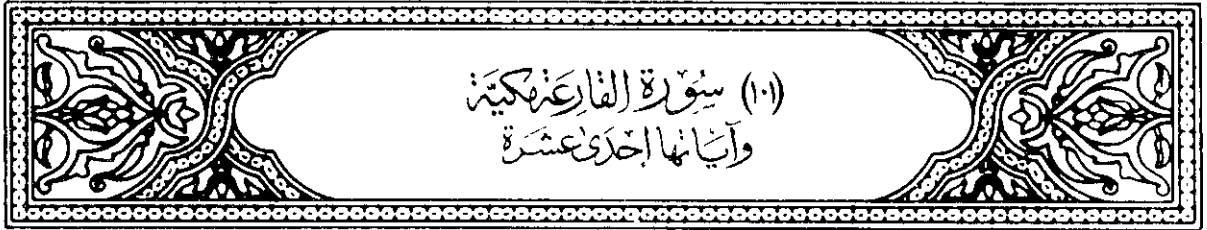 (١٠١) سُوْرَةُ القَارِعَةِ مَكِيَّة
وَآيَاتُهَا إِحْدَىٰ عَشَرَة